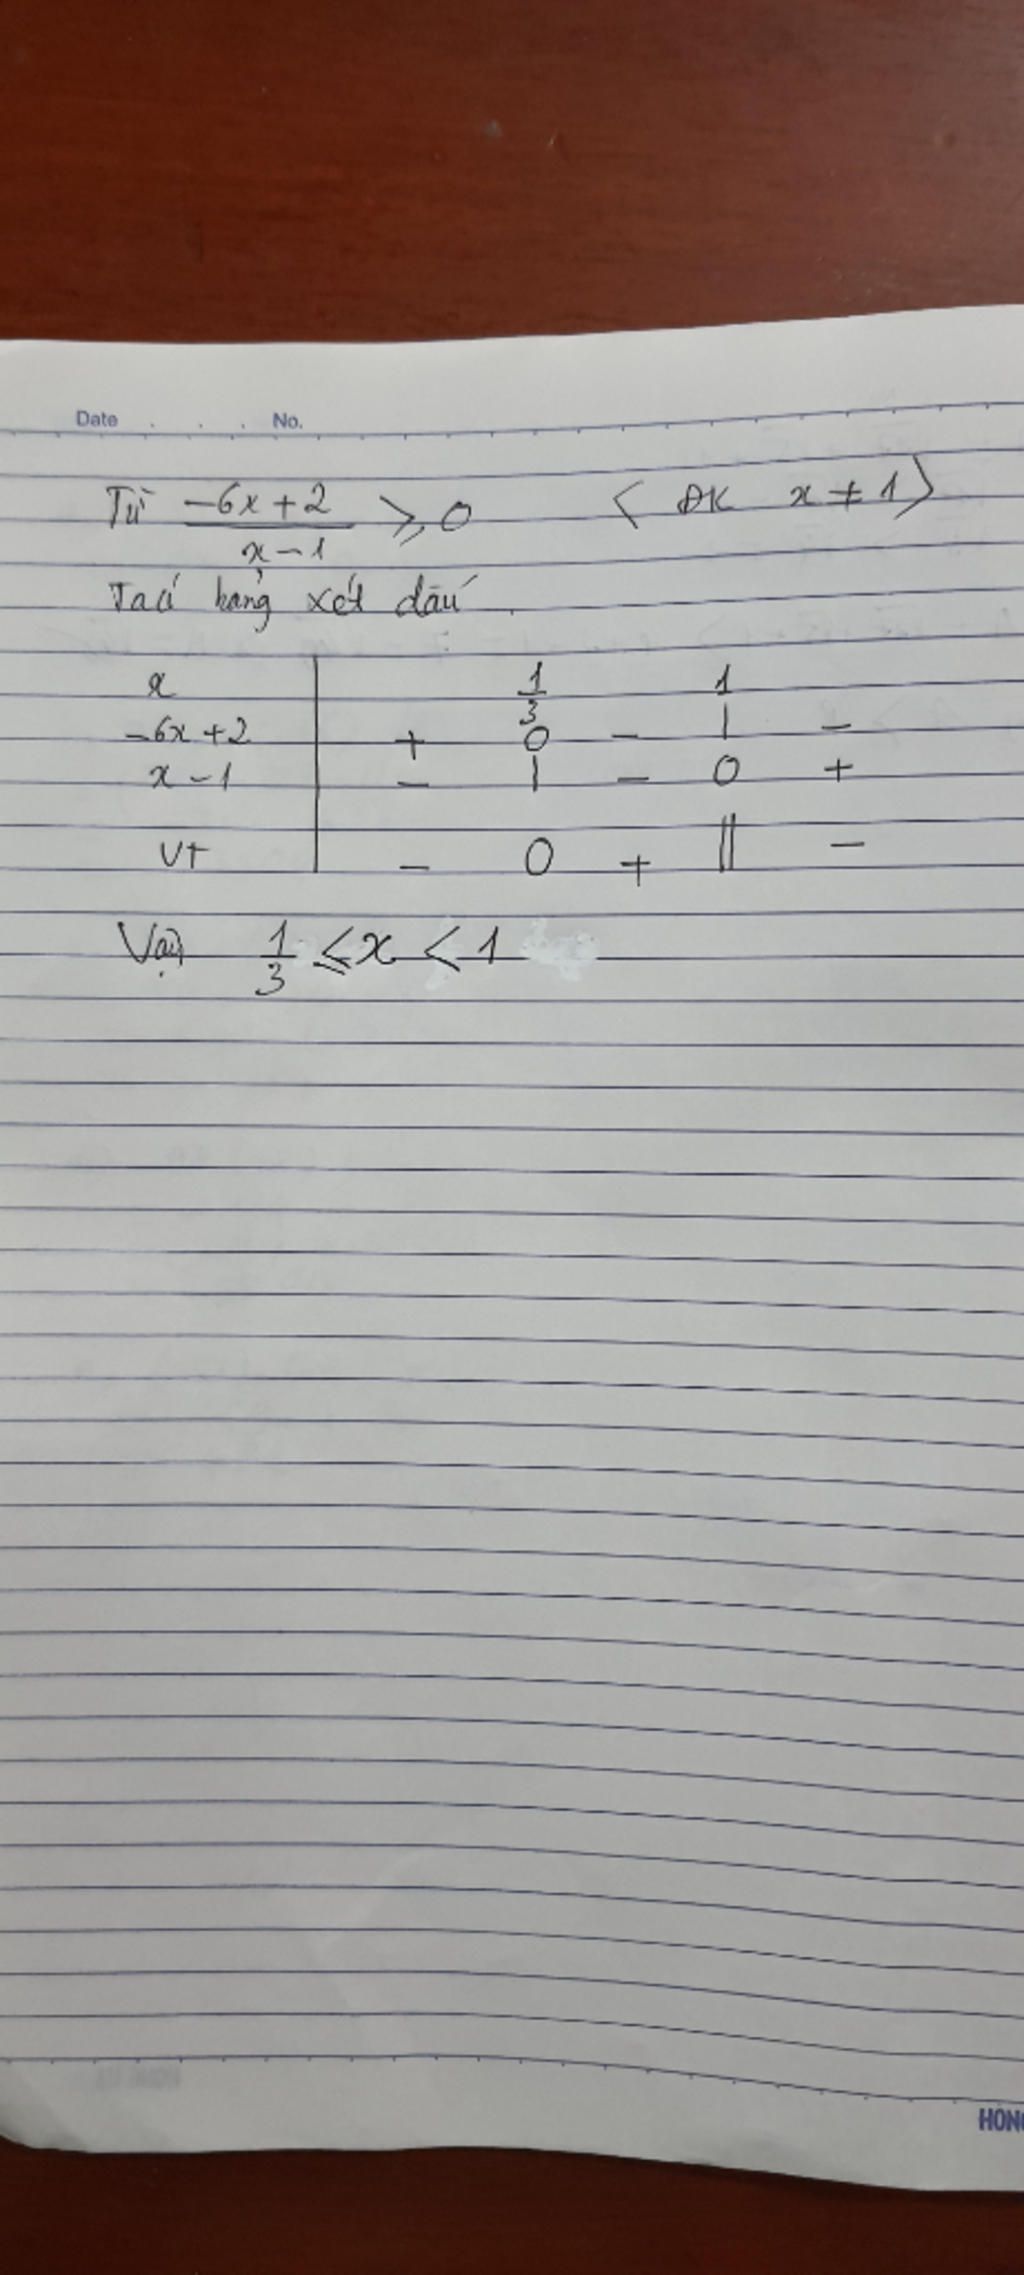 Date . . . No.
Từ -6x+2 / x-1 ⩾ 0 < ĐK x ≠ 1 >
Ta có bảng xét dấu
x | 1/3 1
-6x+2 | + 0 - | -
x-1 | - | - 0 +
VT | - 0 + || -
Vậy 1/3 ≤ x < 1
HON